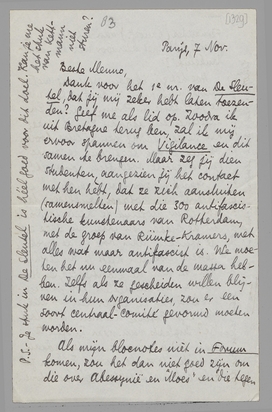 B3
[1935]
Parijs, 7 Nov.
Beste Menno,
Dank voor het 1e nr. van De Sleu-
tel, dat jij mij zeker hebt laten toezen-
den? Geef me als lid op. Zoodra ik
uit Bretagne terug ben, zal ik mij
ervoor spannen om Vigilance en dit
samen te brengen. Maar zeg jij dien
studenten, aangezien jij het contact
met hen hebt, dat ze zich aansluiten
(samensmelten) met die 300 antifascis-
tische kunstenaars van Rotterdam,
met de groep van Rümke-Kramers, met
alles wat maar antifascist is. We moe-
ten het nu eenmaal van de massa heb-
ben. Zelfs als ze gescheiden willen blij-
ven in hun organisaties, zou er een
soort centraal-comité gevormd moeten
worden.
Als mijn blocnotes niet in Forum
komen, zou het dan niet goed zijn om
die over Abessynië en Moes' en die tegen
P.S.- Je stuk in De Sleutel is heel goed voor het doel. Kan je me
het stuk
van Kett-
mann
niet
sturen?